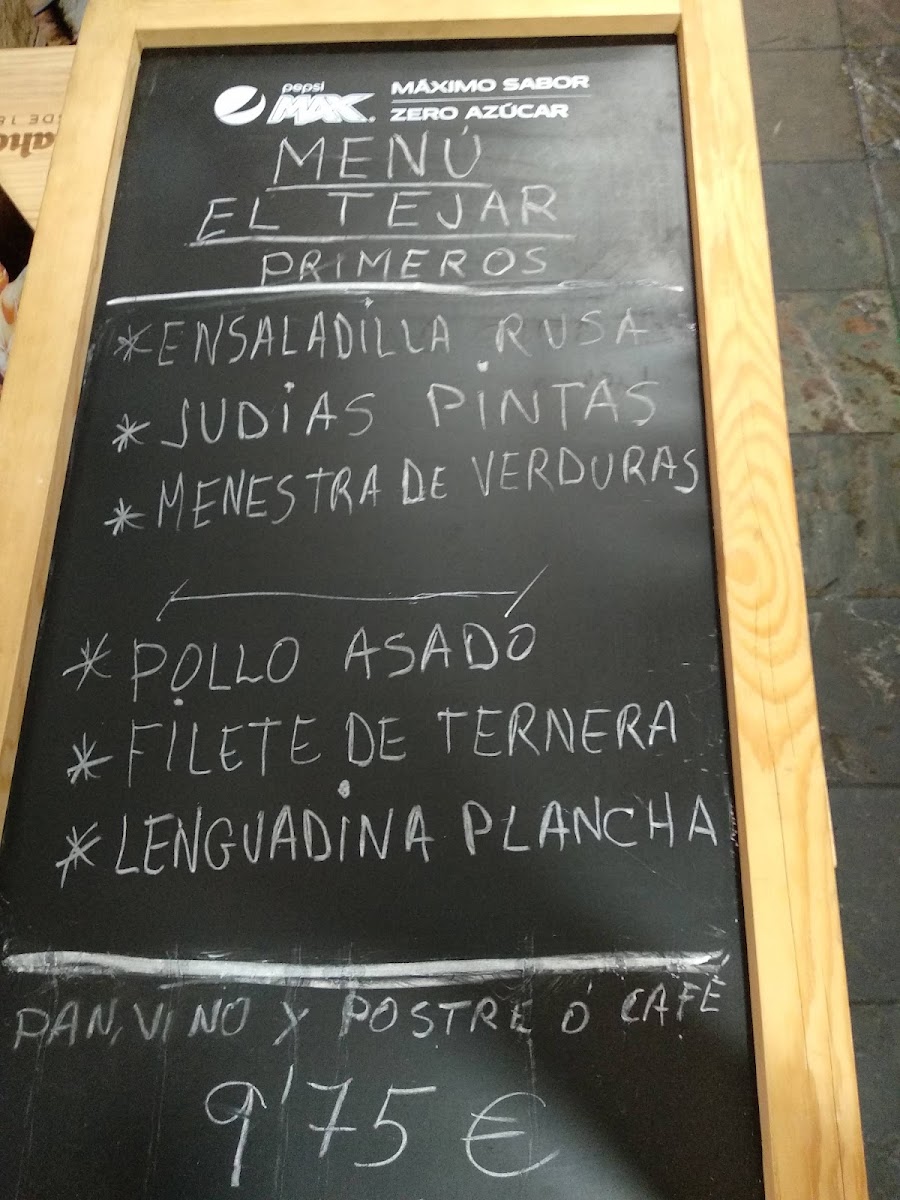 pepsi
MAX.
MÁXIMO SABOR
ZERO AZÚCAR
MENÚ
EL TEJAR
PRIMEROS
*ENSALADILLA RUSA
*JUDIAS PINTAS
*MENESTRA DE VERDURAS
*POLLO ASADO
*FILETE DE TERNERA
*LENGUADINA PLANCHA
PAN, VINO Y POSTRE Ó CAFÉ
9'75 €